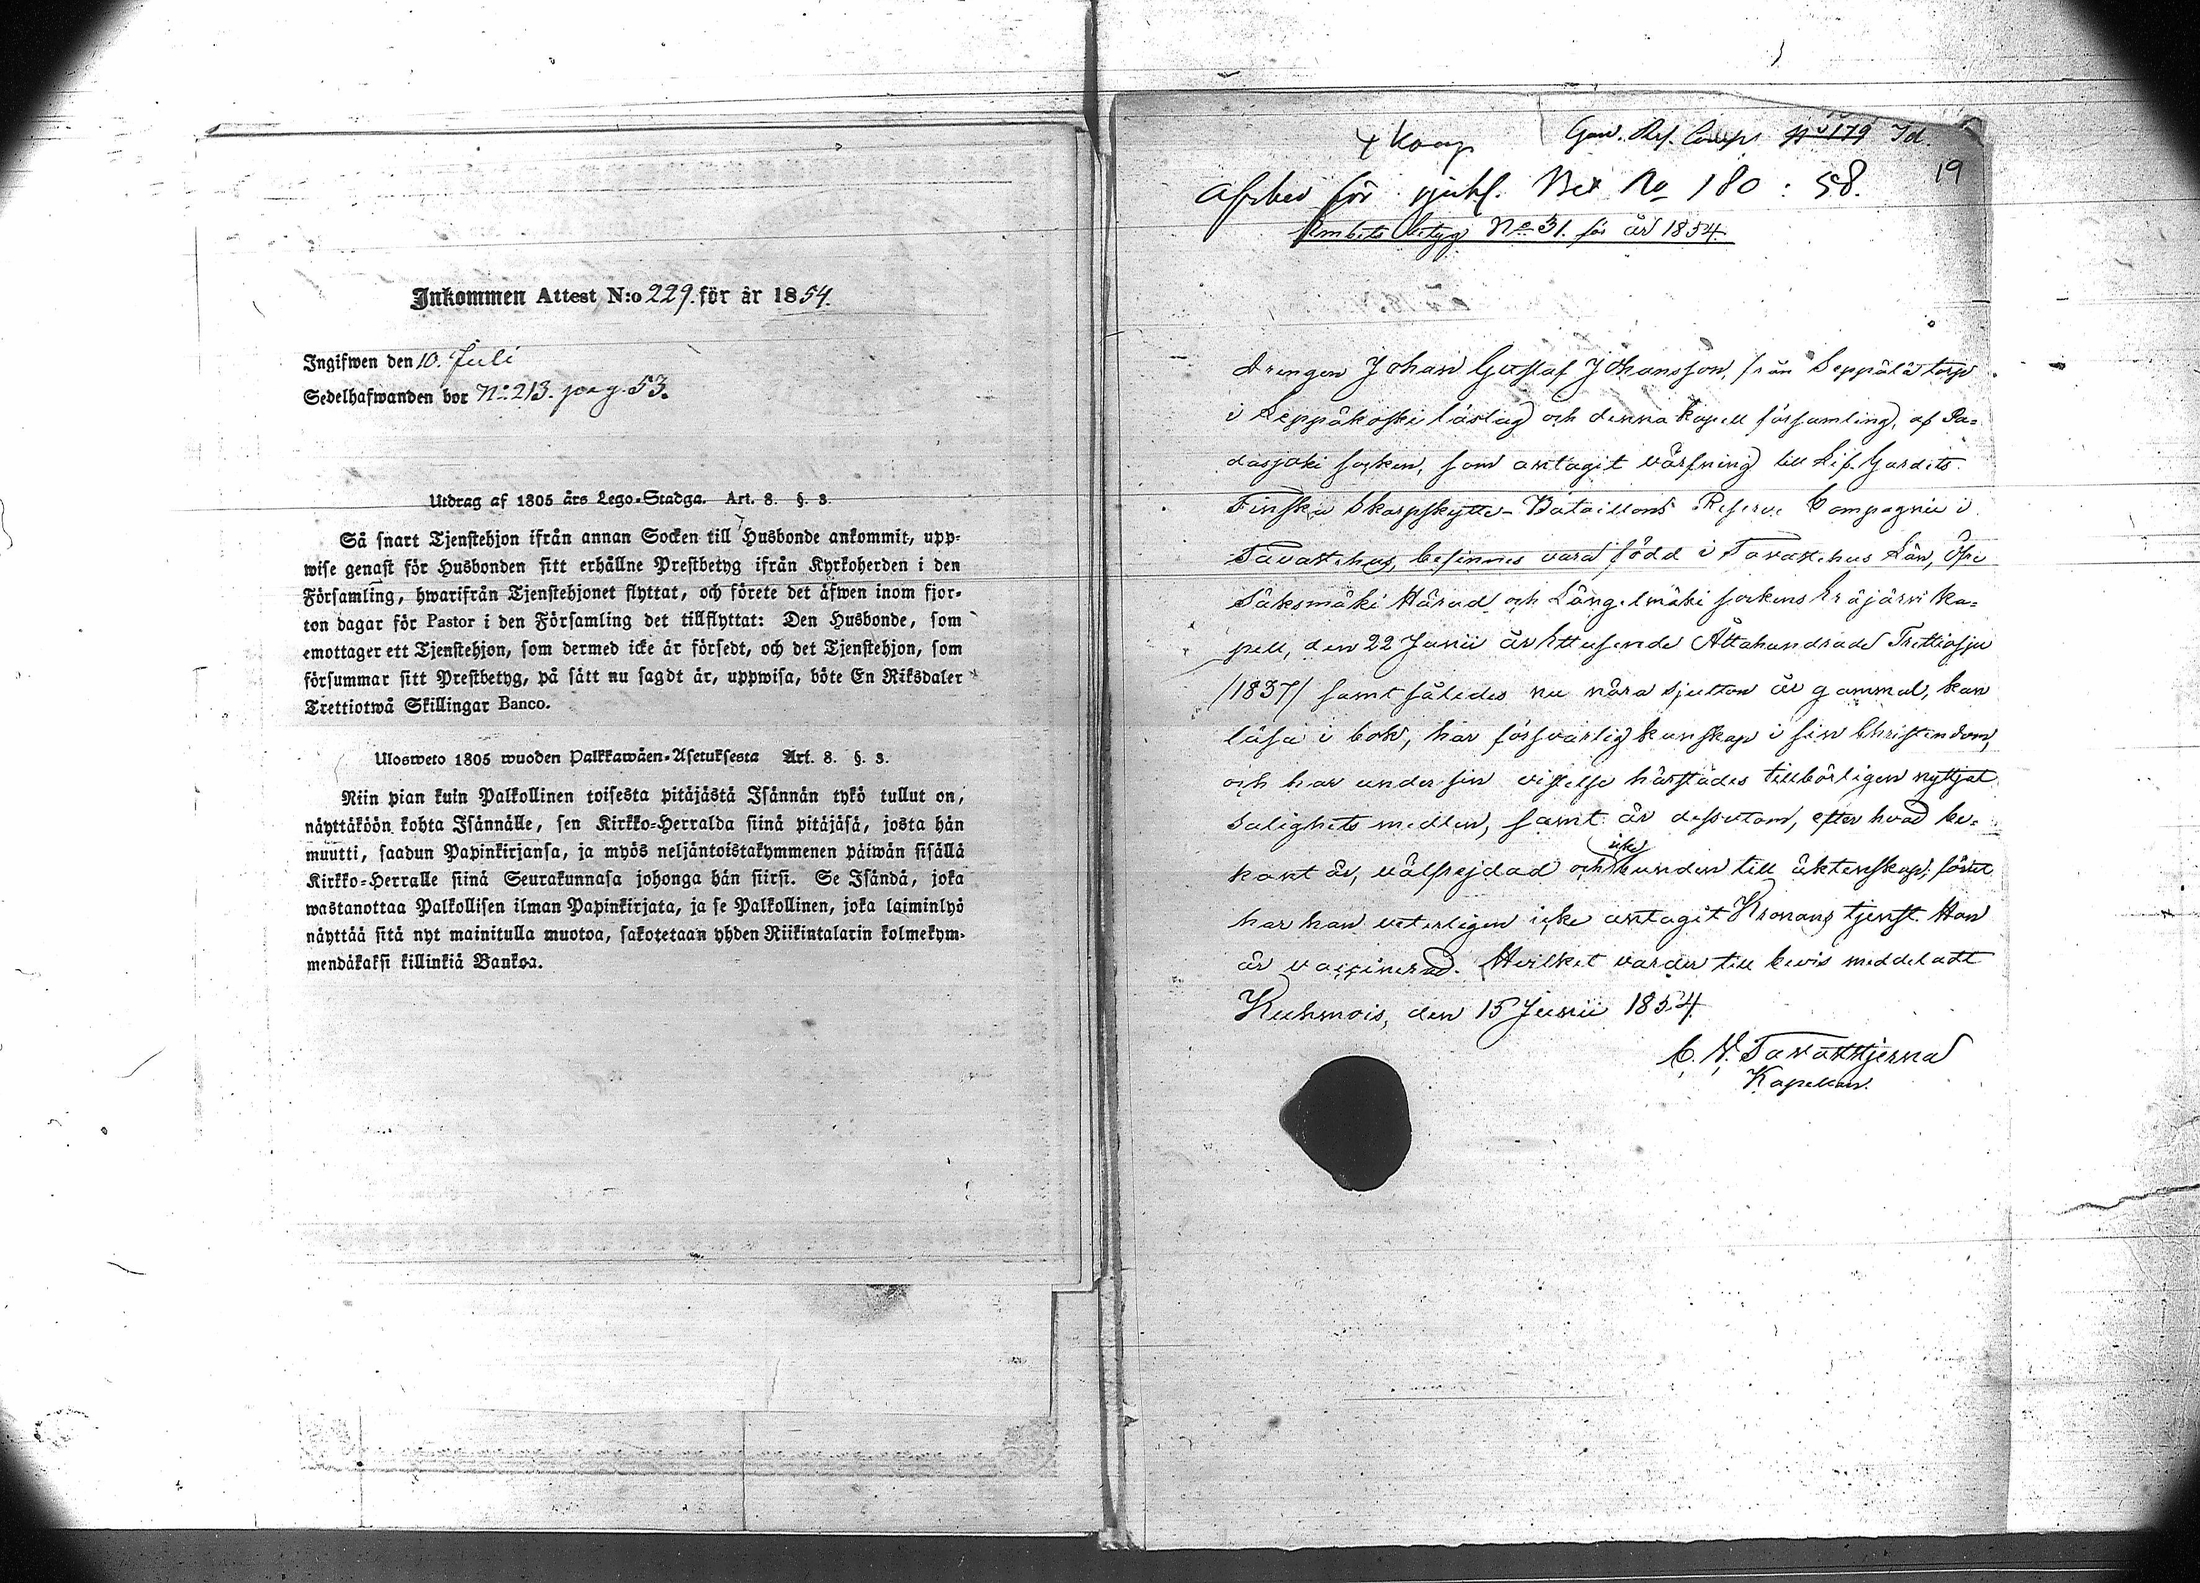 Inkommen Attest N:o 229. för år 1854.
Ingifwen den 10. Juli
Sedelhafwanden bor No 213. pag 53.
Utdrag af 1805 års Lego-Stadga. Art. 8. §. 3.
Så snart Tjenstehjon ifrån annan Socken till Husbonde ankommit, upp-
wise genast för Husbonden sitt erhållne Prestbetyg ifrån Kyrkoherden i den
Församling, hwarifrån Tjenstehjonet flyttat, och förete det äfwen inom fjor-
ton dagar för Pastor i den Församling det tillflyttat: Den Husbonde, som
emottager ett Tjenstehjon, som dermed icke är försedt, och det Tjenstehjon, som
försummar sitt Prestbetyg, på sätt nu sagdt är, uppwisa, böte En Riksdaler
Trettiotwå Skillingar Banco.
Ulosweto 1805 wuoden Palkkawäen-Asetuksesta Art. 8. §. 3.
Niin pian kuin Palkollinen toisesta pitäjästä Isännän tykö tullut on,
näyttäköön kohta Isännälle, sen Kirkko-Herralda siinä pitäjäsä, josta hän
muutti, saadun Papinkirjansa, ja myös neljäntoistakymmenen päiwän sisällä
Kirkko-Herralle siinä Seurakunnasa johonga hän siirsi. Se Isändä, joka
wastanottaa Palkollisen ilman Papinkirjata, ja se Palkollinen, joka laiminlyö
näyttää sitä nyt mainitulla muotoa, sakotetaan yhden Riikintalarin kolmekym-
mendäkaksi killinkiä Bankoa.
Comp No 179
19
för Bet No 180 : 58.
Embets betyg No 31. för år 1854.
Drengen Johan Gustaf Johansson, från Seppälä torp
i Leppäkoski läslag och denna kapell församling, af Pa-
dasjoki socken, som antagit värfning till Lif-Gardets
Finska Skarpskytte-Bataillons Reserve Compagnie i
Tavastehus, befinnes vara född i Tavastehus Län, Öfre
Sääksmäki Härad och Längelmäki sockens Eräjärvi ka-
pell, den 22 Junii år Ettusende Åttahundrade Trettiosju
/1837/ samt således nu nära sjutton år gammal, kan
läsa i bok, har försvarlig kunskap i sin Christendom,
och har under sin vistelse härstädes tillbörligen nyttjat
Salighets medlen, samt är dessutom, efter hvad be-
kant är, välfrejdad och icke bunden till äktenskap; förut
har han veterligen icke antagit Kronans tjenst. Han
är vaccinerad. Hvilket varder till bevis meddeladt
Kuhmois, den 15 Junii 1854
C. N. Tavaststjerna
Kapellan.